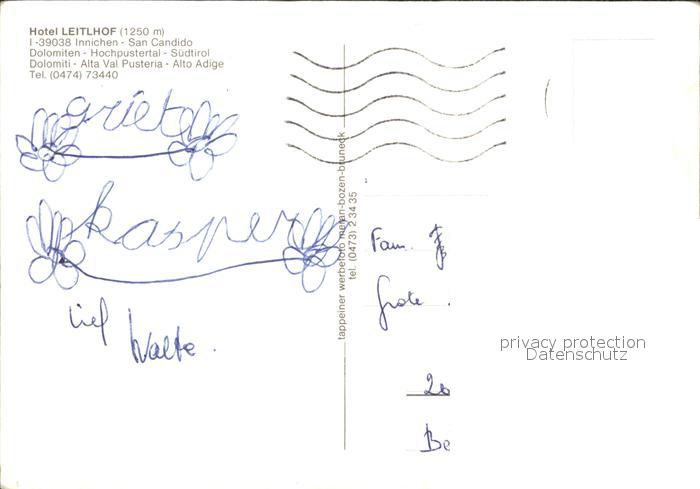 Hotel LEITLHOF (1250 m)
I-39038 Innichen - San Candido
Dolomiten - Hochpustertal - Südtirol
Dolomiti - Alta Val Pusteria - Alto Adige
Tel. (0474) 73440
griet
kasper
lief
Walte.
tappeiner werbefoto meran-bozen-bruneck
tel. (0473) 2 34 35
Fam.
Grote
20
Be
privacy protection
Datenschutz